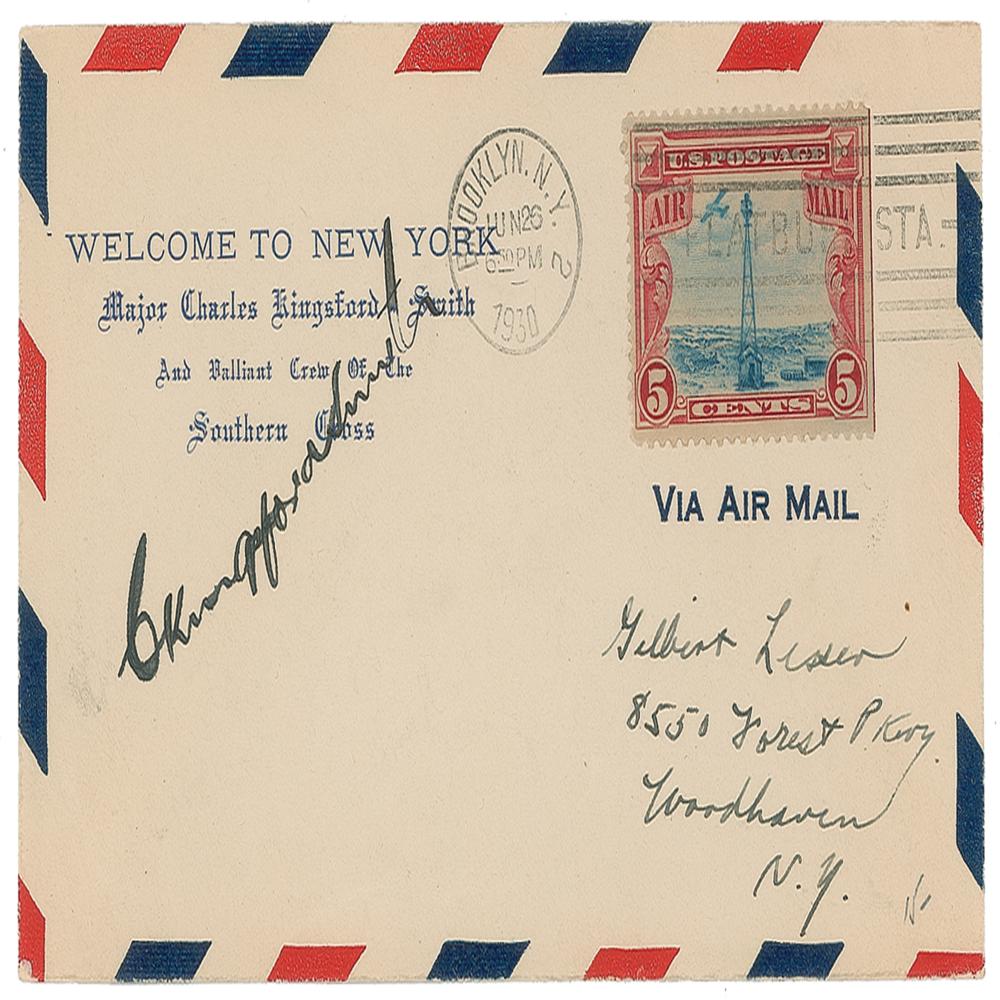 WELCOME TO NEW YORK
Major Charles Kingsford Smith
And Valliant Crew Of The
Southern Cross
CKingsfordSmith
BROOKLYN, N.Y. 2
JUN 26
6 30 PM
1930
FLATBUSH STA.
U.S. POSTAGE
AIR MAIL
5 CENTS 5
VIA AIR MAIL
Gilbert Lesser
8550 Forest Pkwy.
Woodhaven
N.Y.